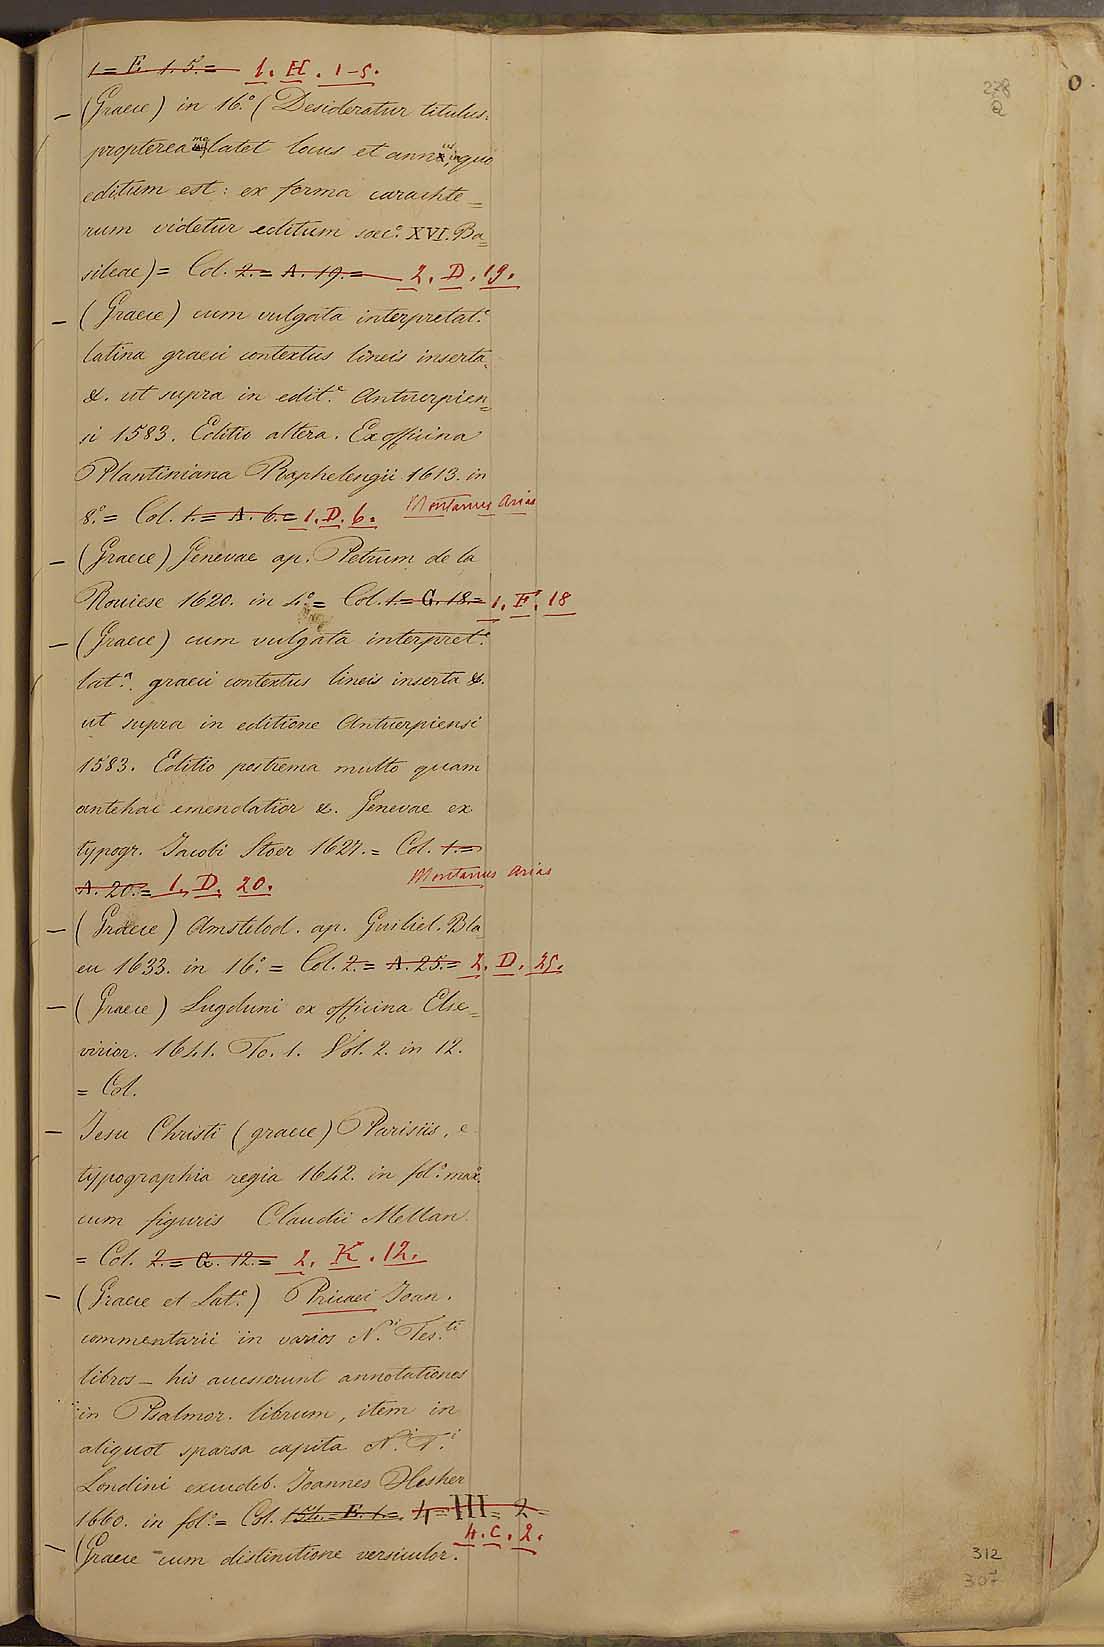 1= E 1. 5.= 1. H. 1-5.
— (Graece) in 16.° (Desideratur titulus.
propterea me latet locus et annus, in quo
editum est: ex forma carachte=
rum videtur editum saec.° XVI. Ba=
sileae)= Col. 2.= A. 19.= 2. D. 19.
— (Graece) cum vulgata interpretat.e
latina graeci contextus lineis inserta,
&. ut supra in edit.e Antuerpien=
si 1583. Editio altera. Ex officina
Plantiniana Raphelengii 1613. in
8.°= Col. 1.= A. 6.= 1. D. 6. Montanus Arias
— (Graece) Genevae ap. Petrum de la
Roviese 1620. in 4.°= Col. 1.= C. 18.= 1. F. 18
— (Graece) cum vulgata interpret.e
lat.a graeci contextus lineis inserta &.
ut supra in editione Antuerpiensi
1583. Editio postrema multo quam
antehac emendatior &. Genevae ex
typogr. Jacobi Stoer 1627.= Col. 1.=
A. 20.= 1. D. 20. Montanus Arias
— (Graece) Amstelod. ap. Guiliel. Bla=
eu 1633. in 16.°= Col. 2.= A. 25.= 2. D. 25.
— (Graece) Lugduni ex officina Else=
virior. 1641. To. 1. Vol. 2. in 12.
= Col.
— Jesu Christi (graece) Parisiis, e
typographia regia 1642. in fol.° max.°
cum figuris Claudii Mellan
= Col. 2.= G. 12.= 2. K. 12.
— (Graece et Lat.e) Pricaei Joan.
commentarii in varios N.i Tes.ti
libros — his accesserunt annotationes
in Psalmor. librum, item in
aliquot sparsa capita N.i T.i
Londini excudeb. Joannes Flesher
1660. in fol.°= Col. 154.= E. 1.= 4= III= 2=
4. C. 2.
— (Graece cum distinctione versiculor.
278
Q
O.
312
307